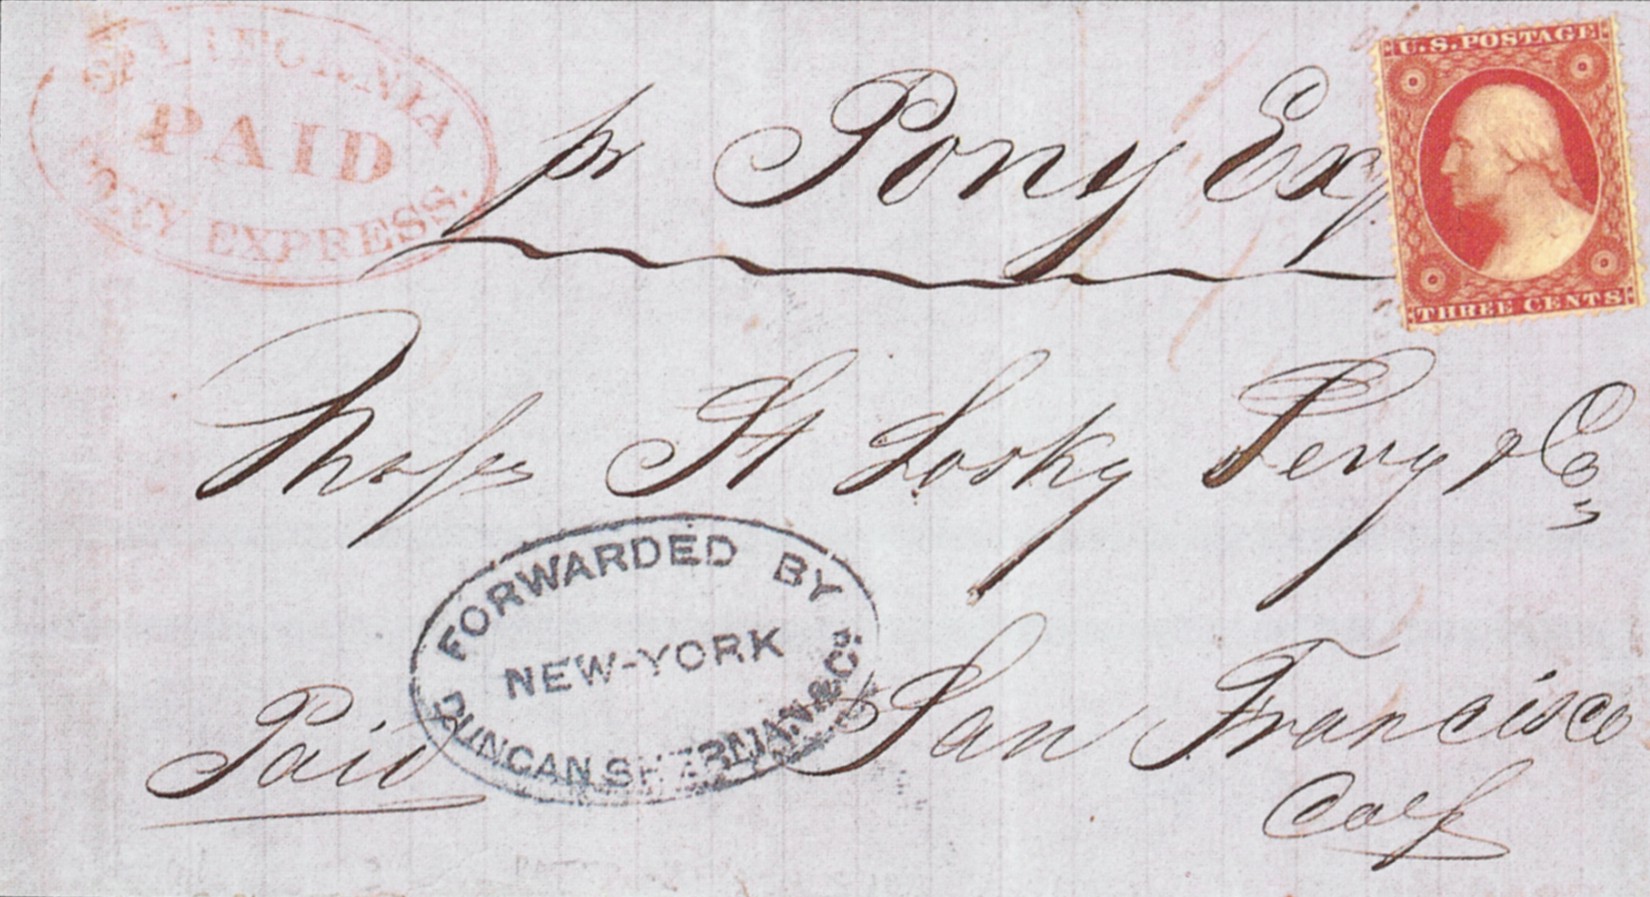 CALIFORNIA
PAID
PONY EXPRESS.
pr Pony Exp
U.S. POSTAGE
THREE CENTS
St Losky Levy & Co
FORWARDED BY
NEW-YORK
DUNCAN, SHERMAN & Co.
Paid
San Francisco
Calf